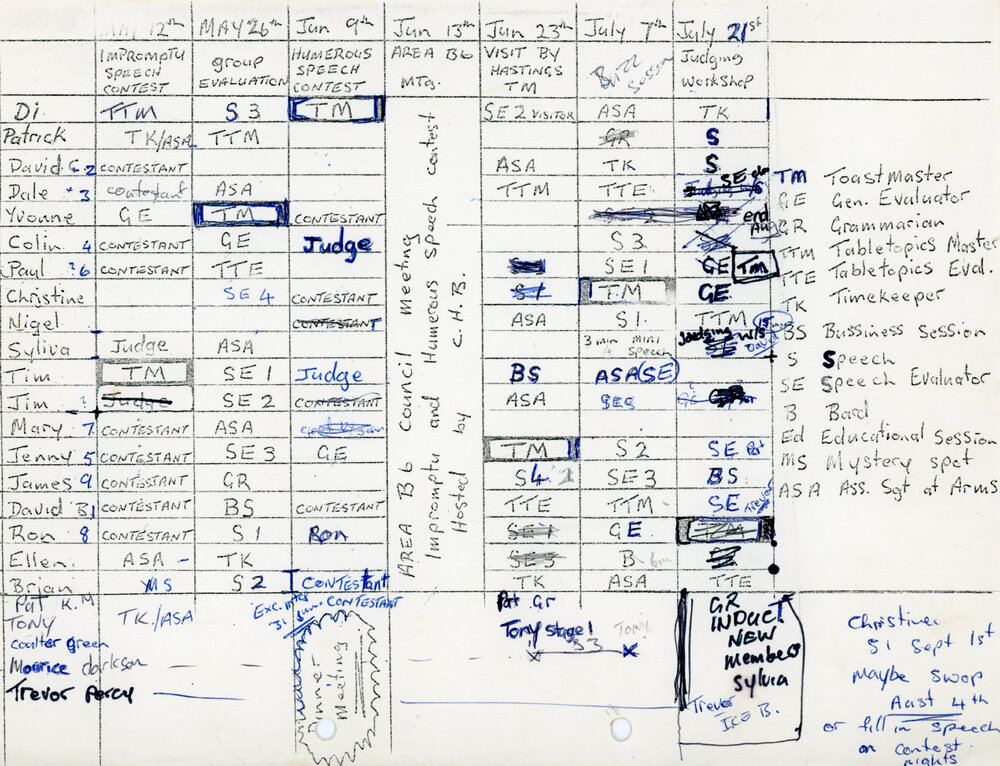 MAY 12th MAY 26th Jun 9th Jun 13th Jun 23rd July 7th July 21st
IMPROMPTU SPEECH CONTEST
group EVALUATION
HUMEROUS SPEECH CONTEST
AREA B6 Mtg.
VISIT BY HASTINGS TM
Buzz Session
Judging Workshop
AREA B6 Council Meeting
Impromptu and Humerous Speech contest
Hosted by C.H.B.
Di TTM S3 TM SE2 VISITOR ASA TK
Patrick TK/ASA TTM GR S
David G 2 CONTESTANT ASA TK S
Dale 3 contestant ASA TTM TTE SE
Yvonne GE TM CONTESTANT end Aug
Colin 4 CONTESTANT GE Judge S3
Paul ?6 CONTESTANT TTE SE1 GE TM
Christine SE4 CONTESTANT S1 TM GE
Nigel CONTESTANT ASA S1. TTM
Syliva Judge ASA 3 min mini speech Judging w/s David
Tim TM SE1 Judge BS ASA (SE)
Jim ? Judge SE2 CONTESTANT ASA
Mary 7 CONTESTANT ASA
Jenny 5 CONTESTANT SE3 GE TM S2 SE Pat
James 9 CONTESTANT GR S4 SE3 BS
David B1 CONTESTANT BS CONTESTANT TTE TTM SE Trevor
Ron 8 CONTESTANT S1 Ron SE1 GE
Ellen ASA TK SE3 B 6m
Brian MS S2 CONTESTANT TK ASA TTE
Pat K.M
Tony TK/ASA
Coulter green
Maurice clarkson
Trevor Percy
CONTESTANT
Dinner Meeting
Pat Gr
Tony stage 1 TONY
GR
INDUCT
NEW
Member
Sylvia
Trevor
Ice B.
TM ToastMaster
GE Gen. Evaluator
GR Grammarian
TTM Tabletopics Master
TTE Tabletopics Eval.
TK Timekeeper
BS Bussiness Session
S Speech
SE Speech Evaluator
B Bard
Ed Educational Session
MS Mystery spot
ASA Ass. Sgt at Arms
Christine
S1 Sept 1st
Maybe swop
Aust 4th
or fill in speech
on contest
nights